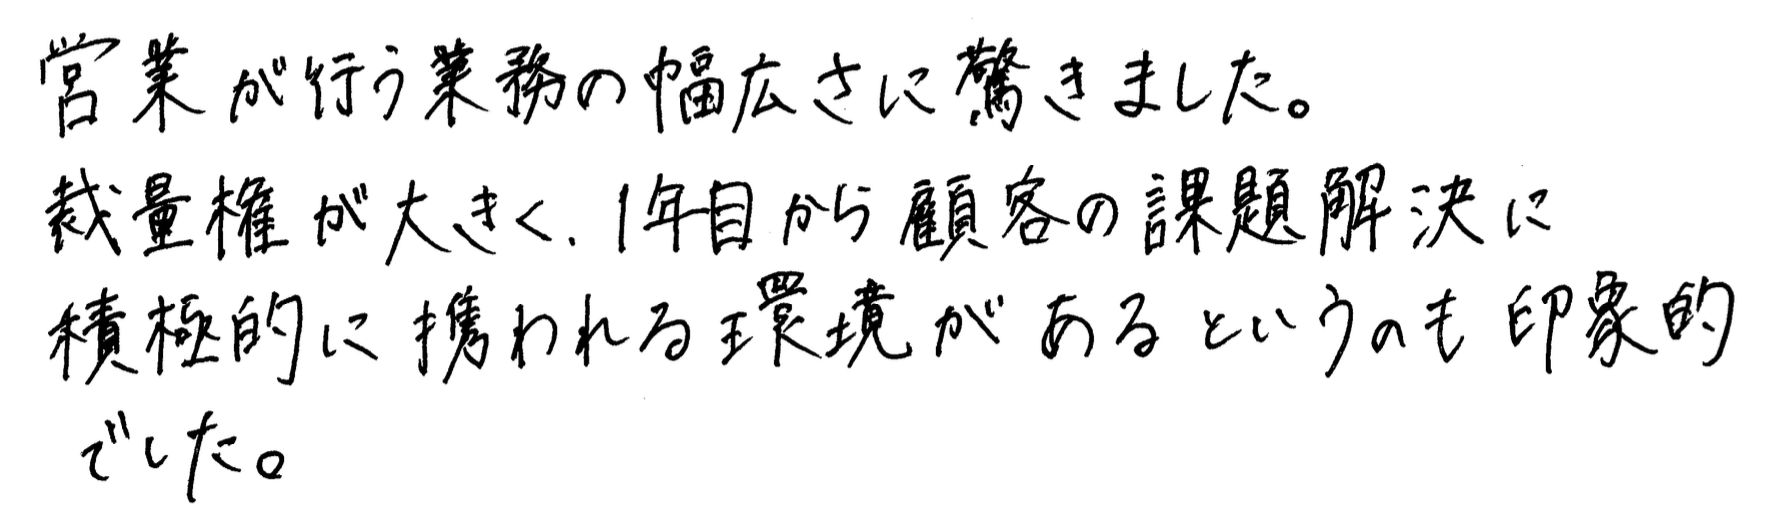 営業が行う業務の幅広さに驚きました。
裁量権が大きく、1年目から顧客の課題解決に
積極的に携われる環境があるというのも印象的
でした。